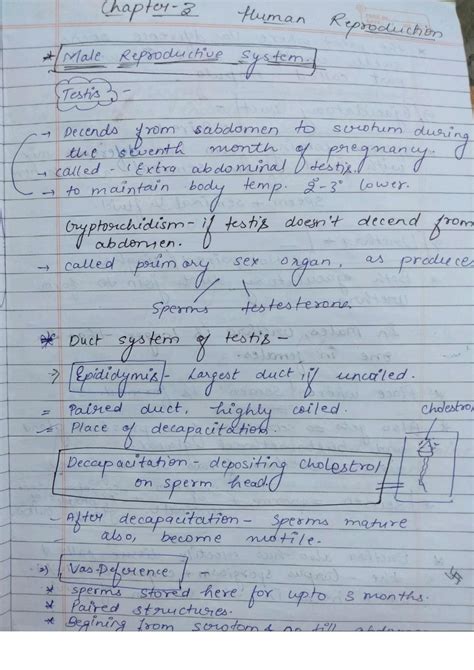 Chapter-3 Human Reproduction
* Male Reproductive System.
Testis :-
→ Decends from sabdomen to scrotum during
the seventh month of pregnancy.
→ called - 'Extra abdominal testis.
→ to maintain body temp. 2°-3° lower.
Cryptorchidism - if testis doesn't decend from
abdomen.
→ called primary sex organ, as produces
Sperms testesterone.
* Duct system of testis -
Epididymis - Largest duct if uncoiled.
= Paired duct, highly coiled.
= Place of decapacitation.
cholestrol
Decapacitation - depositing cholestrol
on sperm head
- After decapacitation - Sperms mature
also, become motile.
2) Vas-Deference -
* sperms stored here for upto 3 months.
* Paired structures.
* Begining from